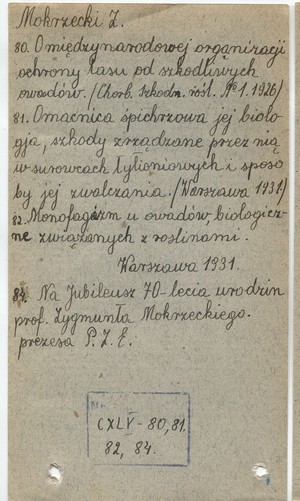 Mokrzecki Z.
80. O międzynarodowej organizacji
ochrony lasu od szkodliwych
owadów. /(Chorb. szkodn. rośl. № 1. 1926)
81. Omacnica spichrzowa jej biolo-
gja, szkody zrządzane przez nią
w surowcach tytoniowych i sposo
by jej zwalczania. /(Warszawa 1931)
82. Monofagizm u owadów, biologicz-
ne związanych z roślinami.
Warszawa 1931.
84. Na Jubileusz 70-lecia urodzin
prof. Zygmunta Mokrzeckiego.
prezesa P. Z. E.
CXLV - 80, 81.
82, 84.